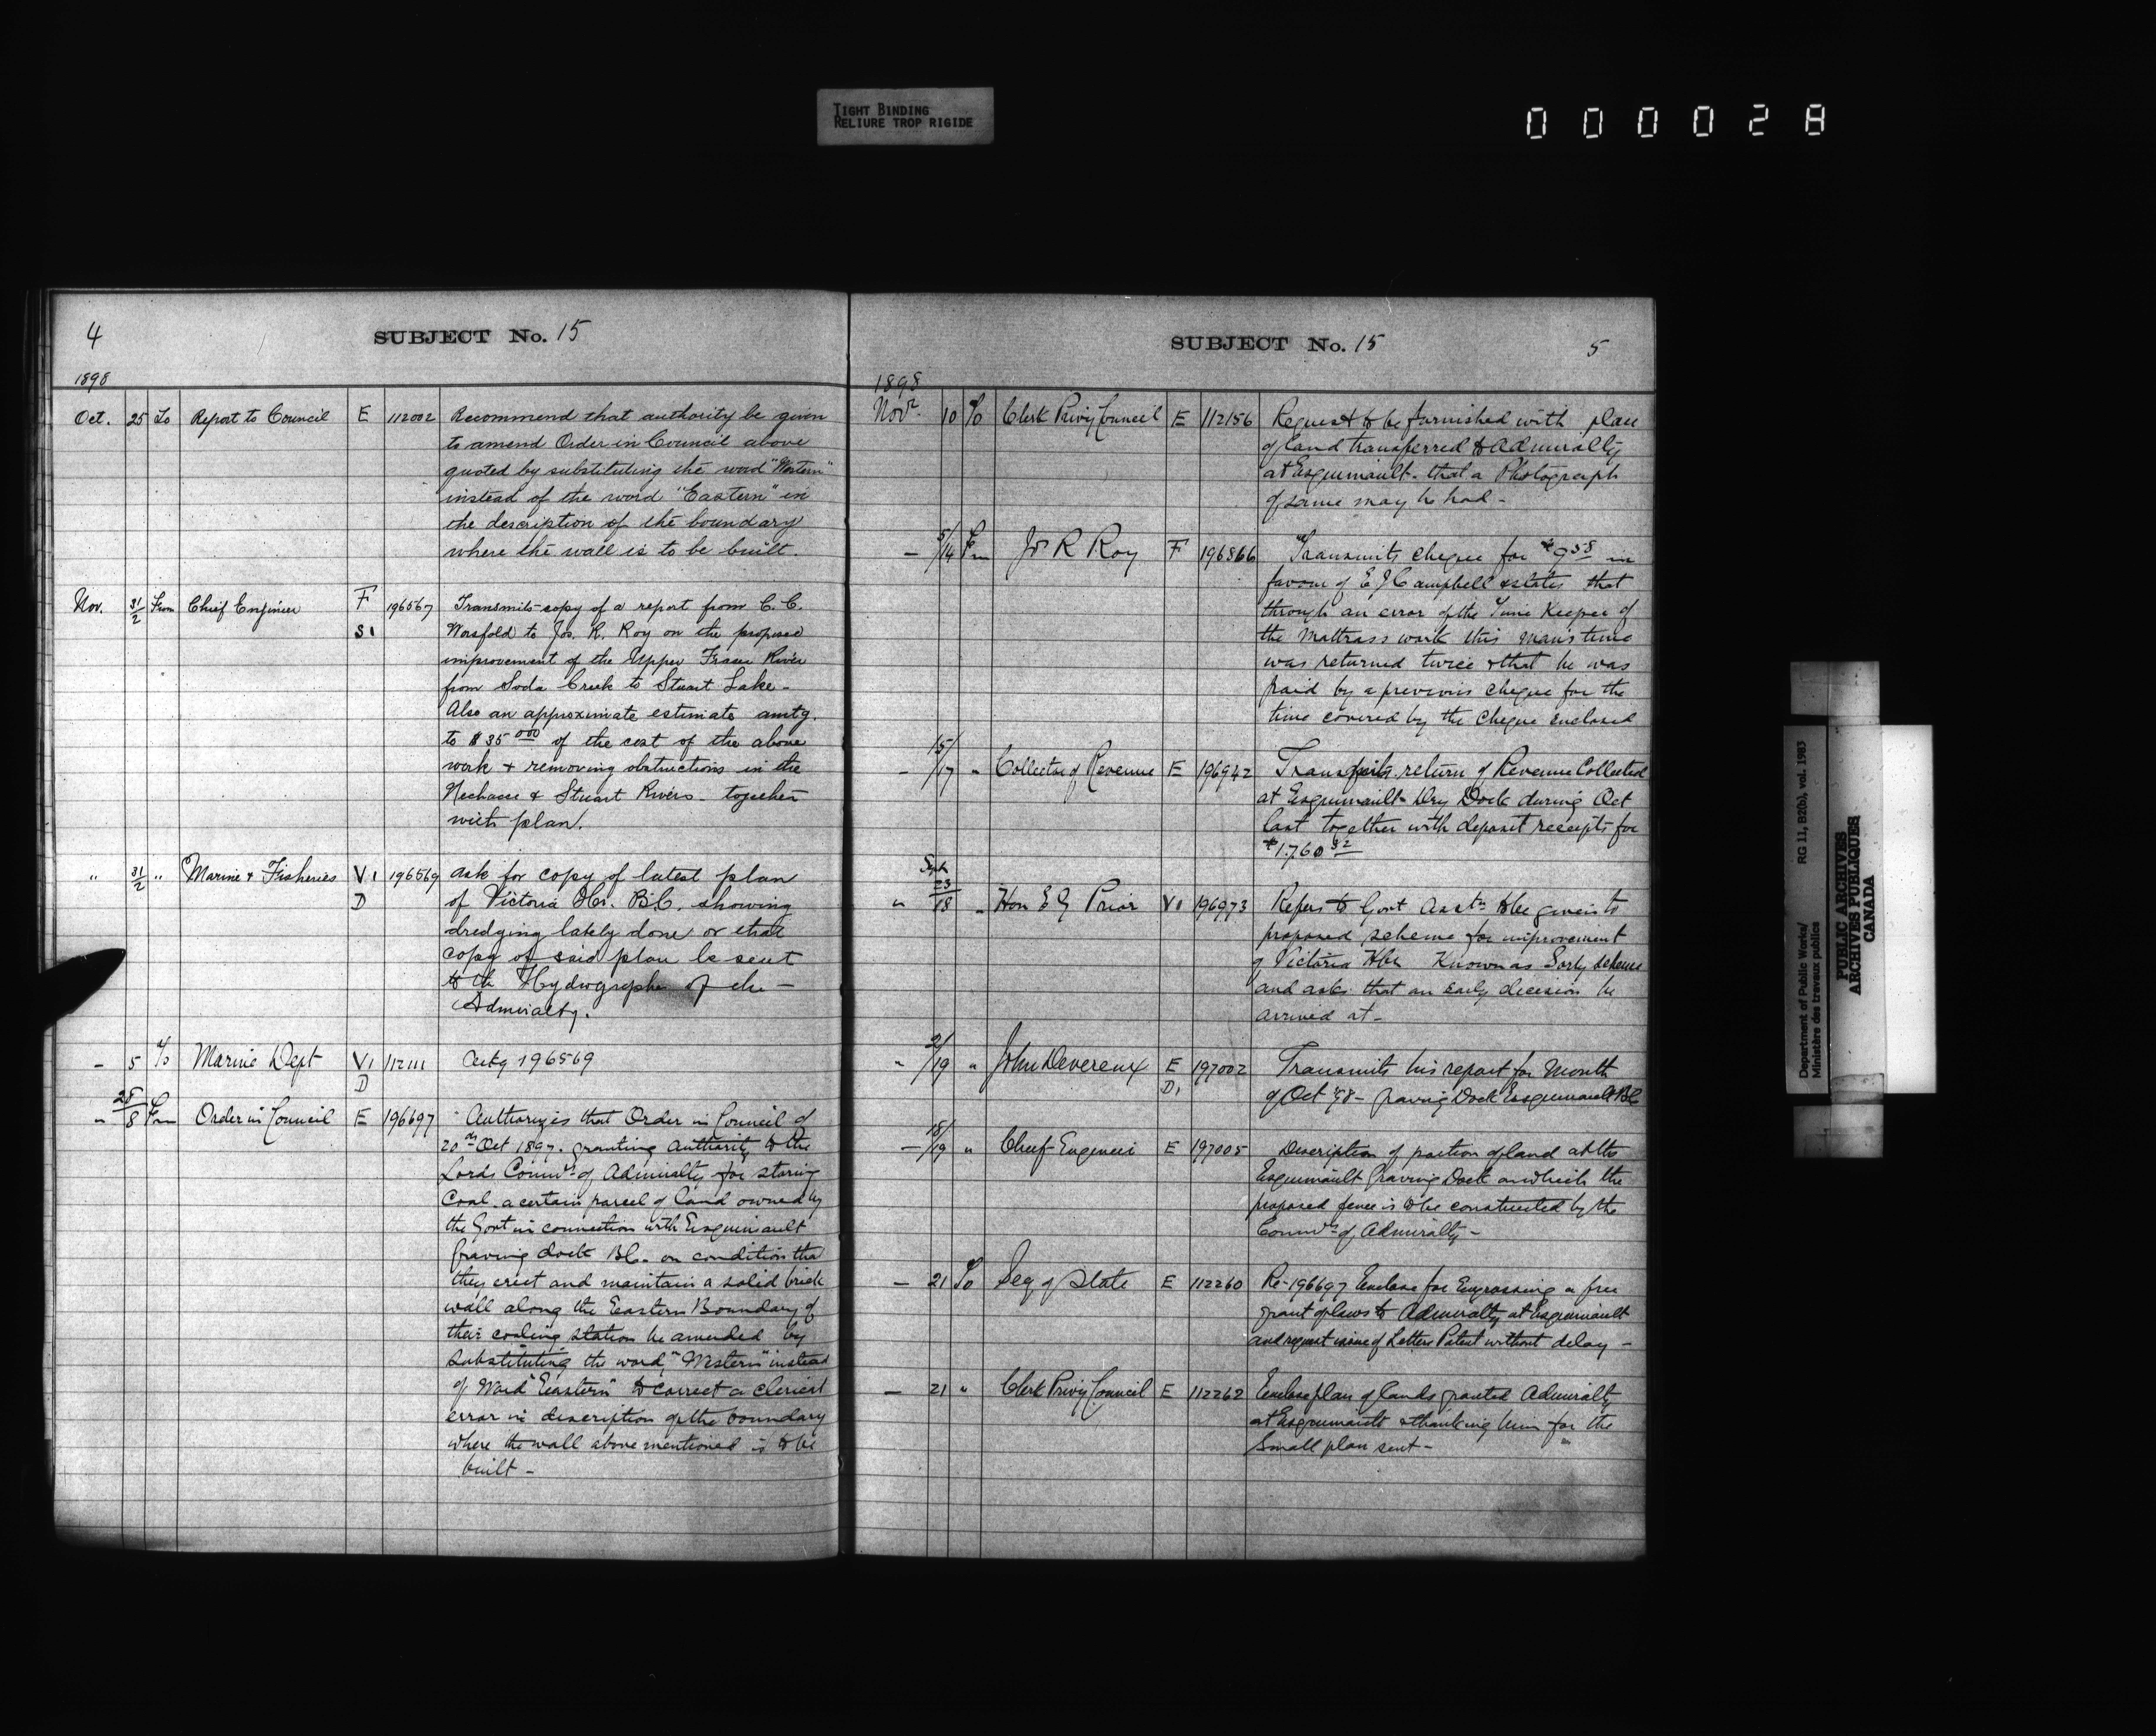 TIGHT BINDING
RELIURE TROP RIGIDE
000028
4
SUBJECT No. 15
1898
Oct. 25 To Report to Council E 112002 Recommend that authority be given
to amend Order in Council above
quoted by substituting the word "Western"
instead of the word "Eastern" in
the description of the boundary
where the wall is to be built.
Nov. 31/2 From Chief Engineer F 196567 Transmits copy of a report from C. C.
S1 Worsfold to Jos. R. Roy on the proposed
improvement of the Upper Fraser River
from Soda Creek to Stuart Lake -
Also an approximate estimate amtg.
to $35000 of the cost of the above
work + removing obstructions in the
Nechaco & Stuart Rivers - together
with plan.
" 31/2 " Marine & Fisheries V1 196569 ask for copy of latest plan
D of Victoria Hr. B.C. showing
dredging lately done or that
copy of said plan be sent
to the Hydrographer of the -
Admiralty.
- 5 To Marine Dept V1 112111 Ackg 196569
D
" 28/8 Fm Order in Council E 196697 Authorizes that Order in Council of
20th Oct 1897. granting authority to the
Lords Commrs of Admiralty for storing
Coal. a certain parcel of land owned by
the Govt in connection with Esquimault
Graving dock BC. on condition that
they erect and maintain a solid brick
wall along the Eastern Boundary of
their coaling station be amended by
substituting the word "Western" instead
of Word "Eastern" to correct a clerical
error in description of the boundary
where the wall above mentioned is to be
built -
SUBJECT No. 15
5
1898
Novr. 10 To Clerk Privy Council E 112156 Request to be furnished with plan
of land transferred to Admiralty
at Esquimault. that a Photograph
of same may be had -
- 5/14 Fm Jos R Roy F 196866 Transmits cheque for $9 58 in
favour of E J Campbell & states that
through an error of the Time Keeper of
the Mattrass work this man's time
was returned twice & that he was
paid by a previous cheque for the
time covered by the cheque enclosed
- 15/17 " Collector of Revenue E 196942 return of Revenue Collected
at Esquimault Dry Dock during Oct
last together with deposit receipts for
$1,760 32
" Sept 23/18 " Hon E G Prior V1 196973 Refers to Govt Asstn to be given to
proposed scheme for improvement
of Victoria Hbr Known as Sorby scheme
and asks that an early decision be
arrived at -
" 2/19 " John Devereux E 197002 Transmits his report for Month
D1 of Oct '98 - Graving Dock Esquimault BC
- 18/19 " Chief Engineer E 197005 Description of portion of land at the
Esquimault Graving Dock on which the
proposed fence is to be constructed by the
Commrs of Admiralty -
- 21 To Secy of State E 112260 Re-196697 Enclose for Engrossing a free
grant of to Admiralty at Esquimault
and request issue of Letters Patent without delay -
- 21 " Clerk Privy Council E 112262 Enclose plan of lands granted Admiralty
at Esquimault & thanking him for the
Small plan sent -
Department of Public Works/ RG 11, B2(b), vol. 1983
Ministère des travaux publics
PUBLIC ARCHIVES
ARCHIVES PUBLIQUES
CANADA